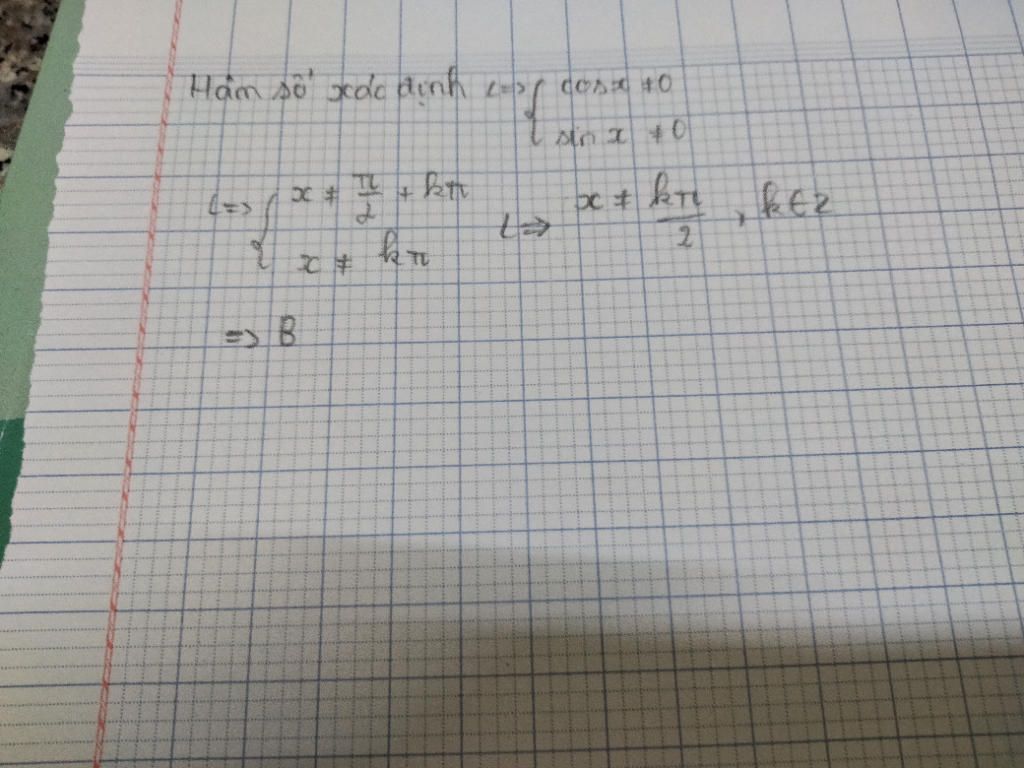 Hàm số xác định <=> { cosx ≠ 0
sin x ≠ 0
<=> { x ≠ π/2 + kπ <=> x ≠ kπ/2 , k ∈ z
x ≠ kπ
=> B